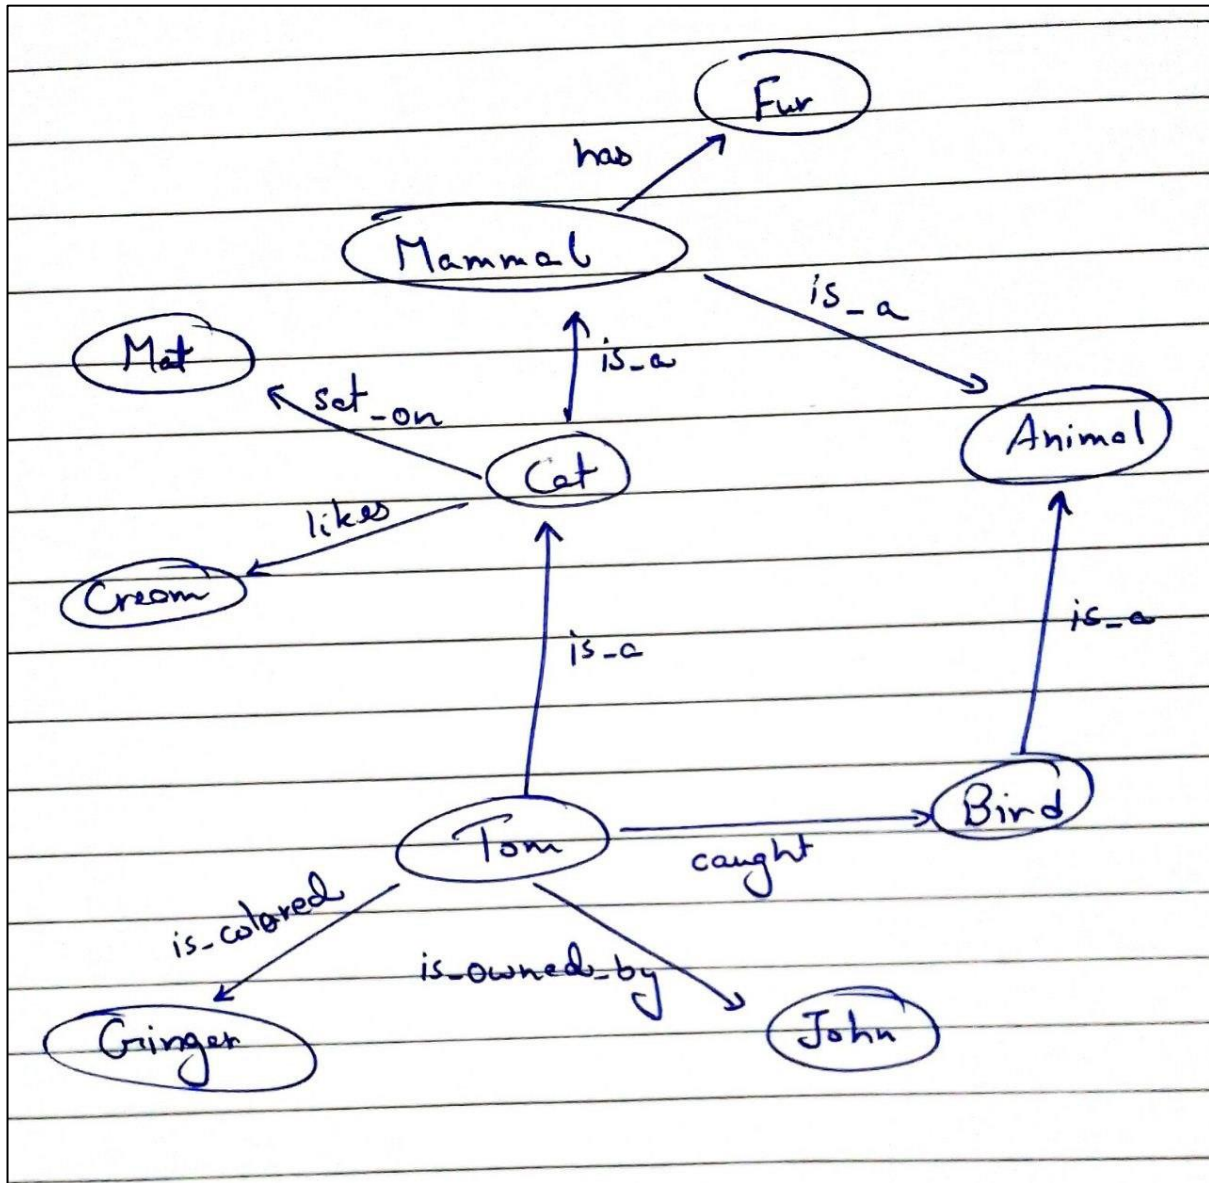 Fur
has
Mammal
is_a
Mat
is_a
sat_on
Animal
Cat
likes
Cream
is_a
is_a
Bird
Tom
caught
is_colored
is_owned_by
Ginger
John